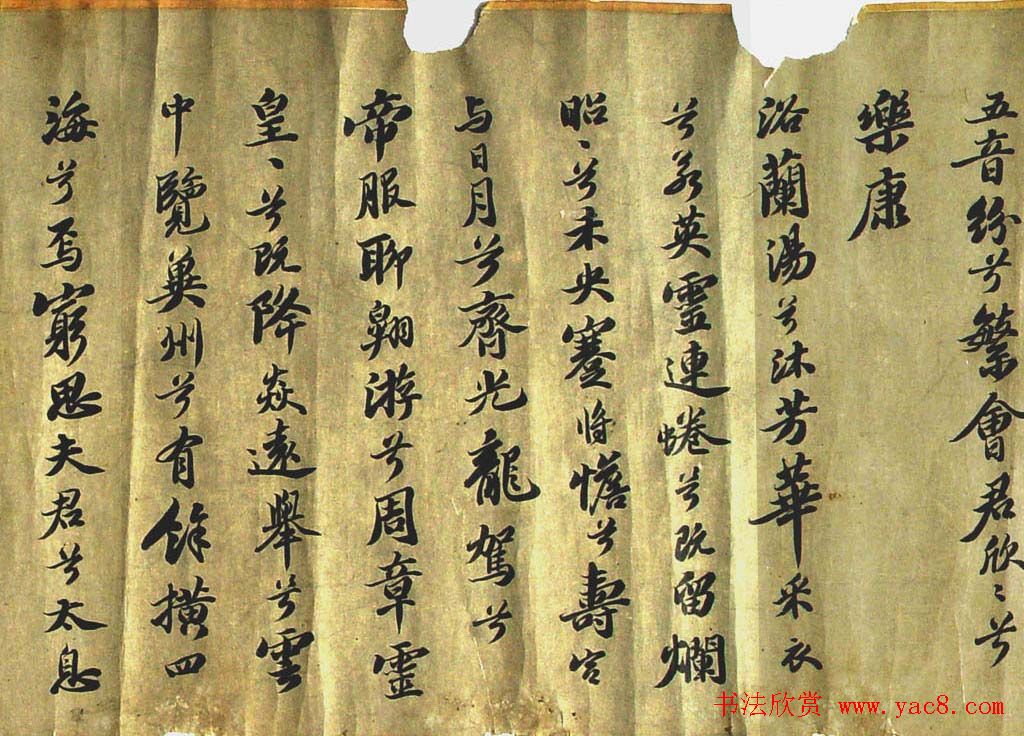 五音紛兮繁會君欣〻兮
樂康
浴蘭湯兮沐芳華采衣
兮若英靈連蜷兮既留爛
昭〻兮未央蹇将憺兮壽宫
与日月兮齊光龍駕兮
帝服聊翱游兮周章靈
皇〻兮既降焱遠舉兮雲
中覽冀州兮有餘横四
海兮焉窮思夫君兮太息
书法欣赏 www.yac8.com